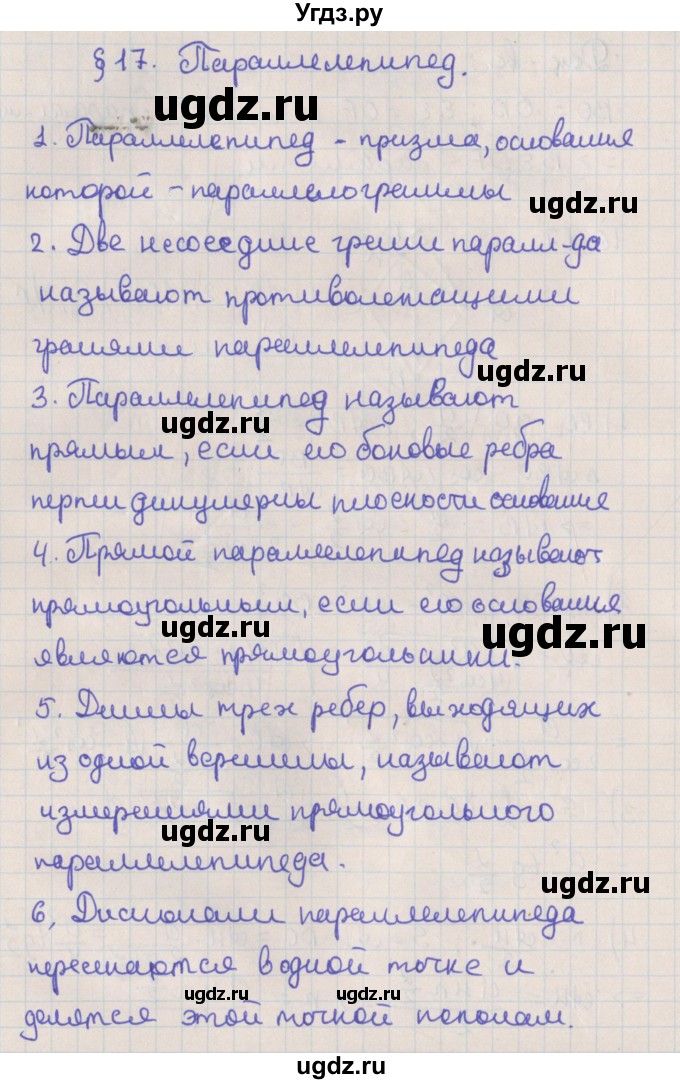 Угдз.ру
§ 17. Параллелепипед.
ugdz.ru
1. Параллелепипед - призма, основания
которой - параллелограммы
ugdz.ru
2. Две несоседние грани паралл-да
называют противолежащими
гранями параллелепипеда
ugdz.ru
3. Параллелепипед называют
ugdz.ru
прямым, если его боковые ребра
перпендикулярны плоскости основания
4. Прямой параллелепипед называют
прямоугольным, если его основания
ugdz.ru
ugdz.ru
являются прямоугольники.
5. Длины трех ребер, выходящих
из одной вершины, называют
измерениями прямоугольного
ugdz.ru
параллелепипеда.
ugdz.ru
6, Диагонали параллелепипеда
пересекаются в одной точке и
ugdz.ru ugdz.ru
делятся этой точкой пополам.
ugdz.ru